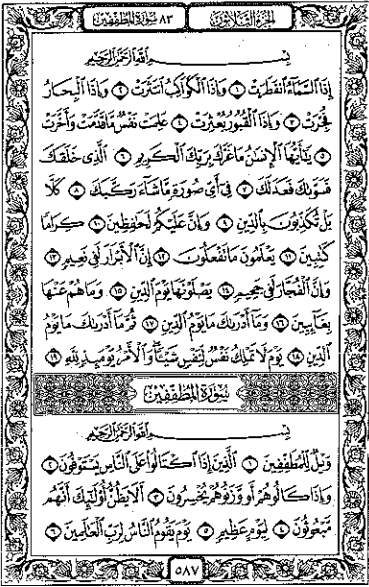 الجزء الثلاثون ٨٣ سورة المطففين
بِسْمِ اللَّهِ الرَّحْمَٰنِ الرَّحِيمِ
إِذَا السَّمَاءُ انفَطَرَتْ ١ وَإِذَا الْكَوَاكِبُ انتَثَرَتْ ٢ وَإِذَا الْبِحَارُ
فُجِّرَتْ ٣ وَإِذَا الْقُبُورُ بُعْثِرَتْ ٤ عَلِمَتْ نَفْسٌ مَّا قَدَّمَتْ وَأَخَّرَتْ
٥ يَا أَيُّهَا الْإِنسَانُ مَا غَرَّكَ بِرَبِّكَ الْكَرِيمِ ٦ الَّذِي خَلَقَكَ
فَسَوَّاكَ فَعَدَلَكَ ٧ فِي أَيِّ صُورَةٍ مَّا شَاءَ رَكَّبَكَ ٨ كَلَّا
بَلْ تُكَذِّبُونَ بِالدِّينِ ٩ وَإِنَّ عَلَيْكُمْ لَحَافِظِينَ ١٠ كِرَامًا
كَاتِبِينَ ١١ يَعْلَمُونَ مَا تَفْعَلُونَ ١٢ إِنَّ الْأَبْرَارَ لَفِي نَعِيمٍ ١٣
وَإِنَّ الْفُجَّارَ لَفِي جَحِيمٍ ١٤ يَصْلَوْنَهَا يَوْمَ الدِّينِ ١٥ وَمَا هُمْ عَنْهَا
بِغَائِبِينَ ١٦ وَمَا أَدْرَاكَ مَا يَوْمُ الدِّينِ ١٧ ثُمَّ مَا أَدْرَاكَ مَا يَوْمُ
الدِّينِ ١٨ يَوْمَ لَا تَمْلِكُ نَفْسٌ لِّنَفْسٍ شَيْئًا وَالْأَمْرُ يَوْمَئِذٍ لِّلَّهِ ١٩
سُورَةُ الْمُطَفِّفِينَ
بِسْمِ اللَّهِ الرَّحْمَٰنِ الرَّحِيمِ
وَيْلٌ لِّلْمُطَفِّفِينَ ١ الَّذِينَ إِذَا اكْتَالُوا عَلَى النَّاسِ يَسْتَوْفُونَ ٢
وَإِذَا كَالُوهُمْ أَو وَّزَنُوهُمْ يُخْسِرُونَ ٣ أَلَا يَظُنُّ أُولَٰئِكَ أَنَّهُم
مَّبْعُوثُونَ ٤ لِيَوْمٍ عَظِيمٍ ٥ يَوْمَ يَقُومُ النَّاسُ لِرَبِّ الْعَالَمِينَ ٦
٥٨٧